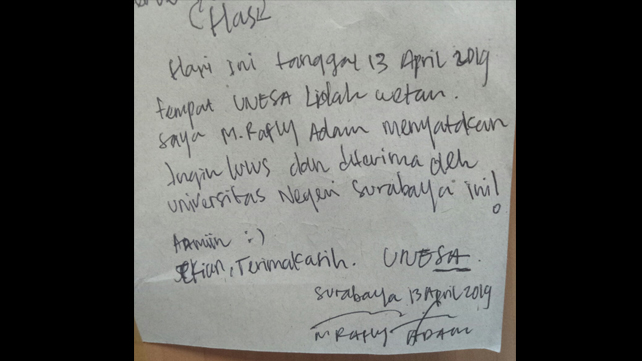 (Hask
Hari ini tanggal 13 April 2019
tempat UNESA Lidah wetan.
saya M.Rafly Adam menyatakan
Ingin lulus dan diterima oleh
universitas Negeri Surabaya ini!
Aamiin :)
Sekian, Terimakasih. UNESA.
Surabaya 13 April 2019
M RAFLY ADAM